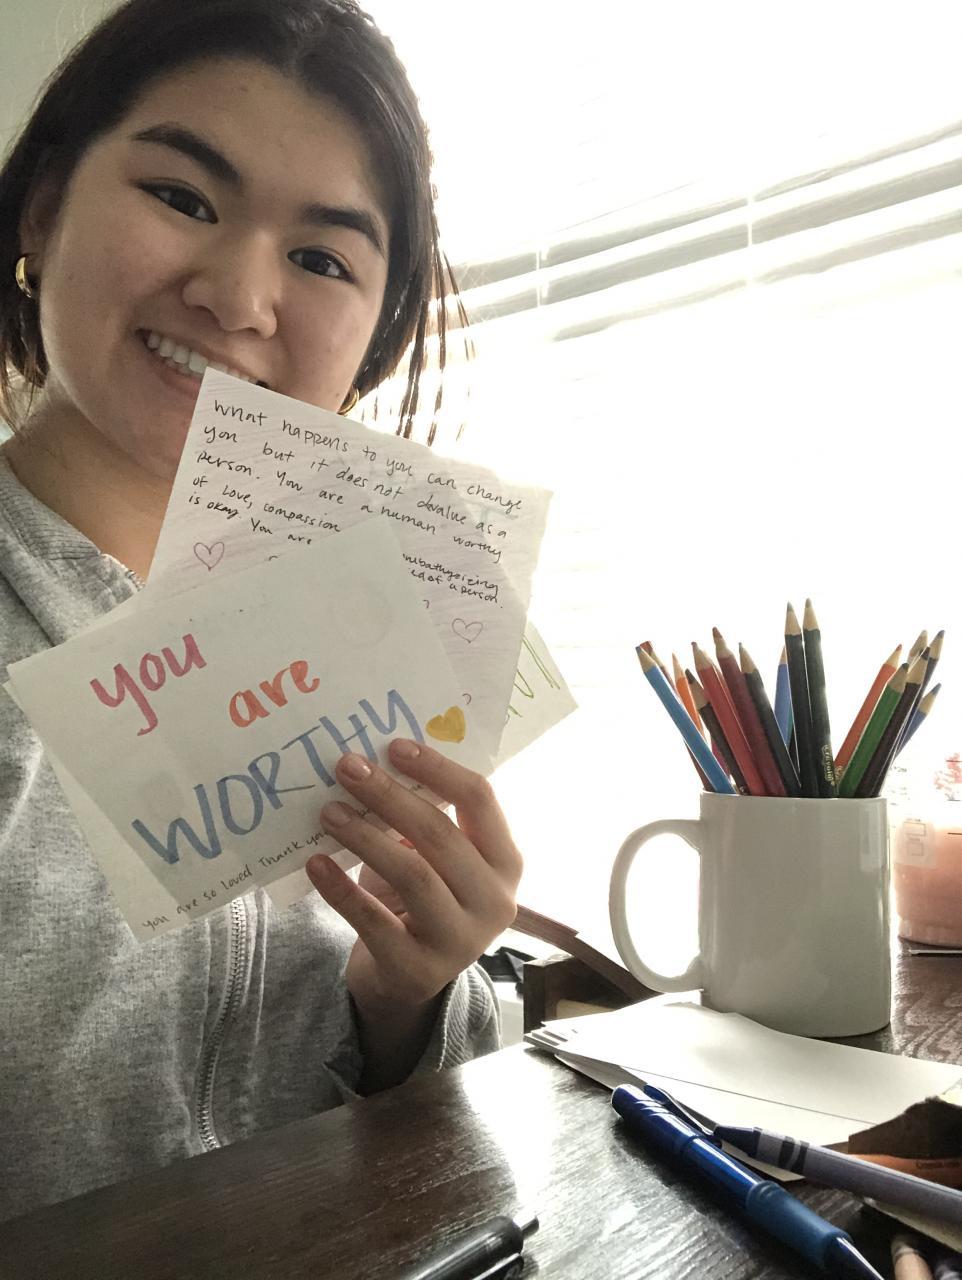 what happens to you can change
you but it does not dvalue as a
person. You are a human worthy
of love, compassion
is okay. You are
mebathgeizing
ed of a person.
you
are
WORTHY
you are so loved Thank you
crayola